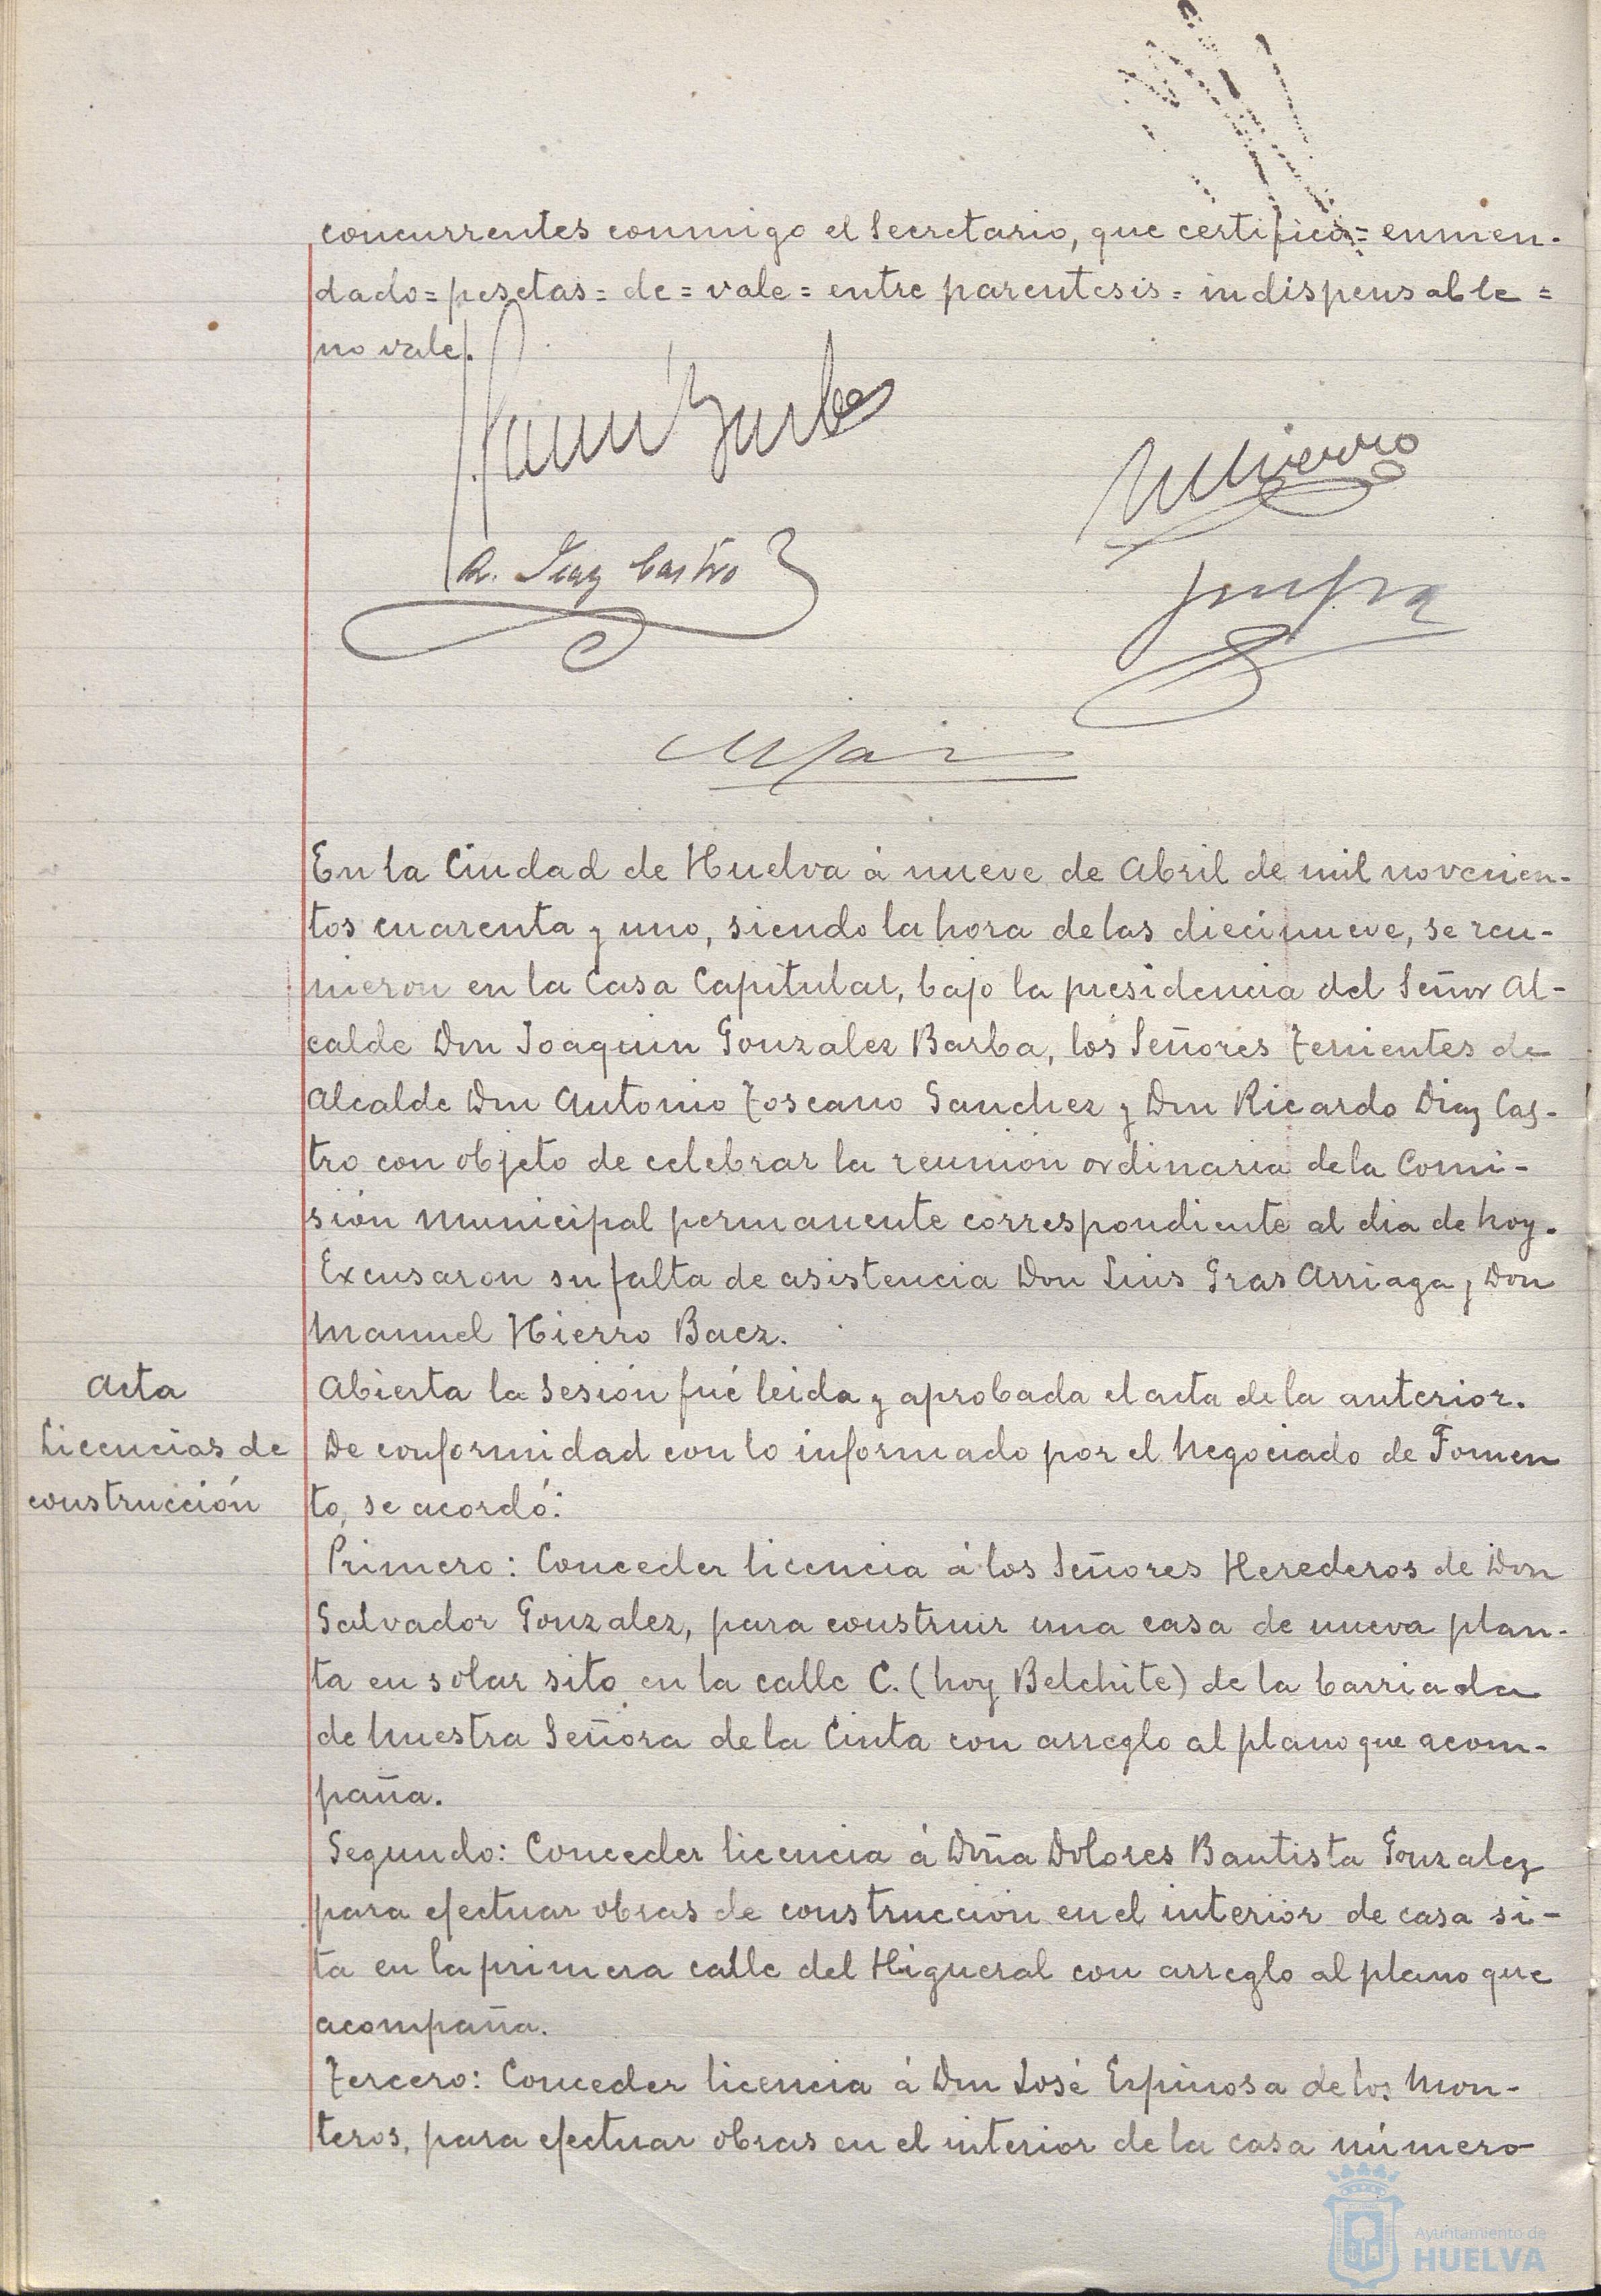 concurrentes conmigo el Secretario, que certifico= enmen-
dado= pesetas= de= vale= entre parentesis= indispensable=
no vale.
R. Diaz Castro
En la Ciudad de Huelva á nueve de Abril de mil novecien-
tos cuarenta y uno, siendo la hora de las diecinueve, se reu-
nieron en la Casa Capitular, bajo la presidencia del Señor Al-
calde Don Joaquin Gonzalez Barba, los Señores Tenientes de
Alcalde Don Antonio Toscano Sanchez y Don Ricardo Diaz Cas-
tro con objeto de celebrar la reunión ordinaria de la Comi-
sión Municipal permanente correspondiente al dia de hoy.
Excusaron su falta de asistencia Don Luis Gras Arriaga y Don
Manuel Hierro Baez.
Acta
Abierta la Sesión fué leida y aprobada el acta de la anterior.
Licencias de
De conformidad con lo informado por el Negociado de Fomen
construcción
to, se acordó:
Primero: Conceder licencia á los Señores Herederos de Don
Salvador Gonzalez, para construir una casa de nueva plan-
ta en solar sito en la calle C. (hoy Belchite) de la barriada
de Nuestra Señora de la Cinta con arreglo al plano que acom-
paña.
Segundo: Conceder licencia á Doña Dolores Bautista Gonzalez
para efectuar obras de construcción en el interior de casa si-
ta en la primera calle del Higueral con arreglo al plano que
acompaña.
Tercero: Conceder licencia á Don José Espinosa de los Mon-
teros, para efectuar obras en el interior de la casa número
Ayuntamiento de
HUELVA